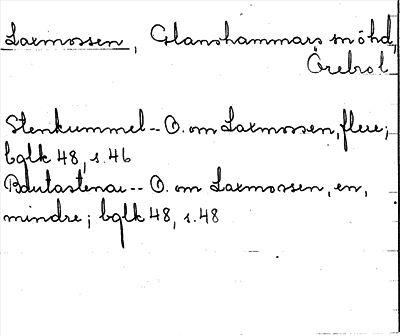 Laxmossen, Glanshammars snöhd,
Örebro l.
Stenkummel -- O. om Laxmossen, flere;
bglk 48, s. 46
Bautastenar -- O. om Laxmossen, en,
mindre; bglk 48, s. 48